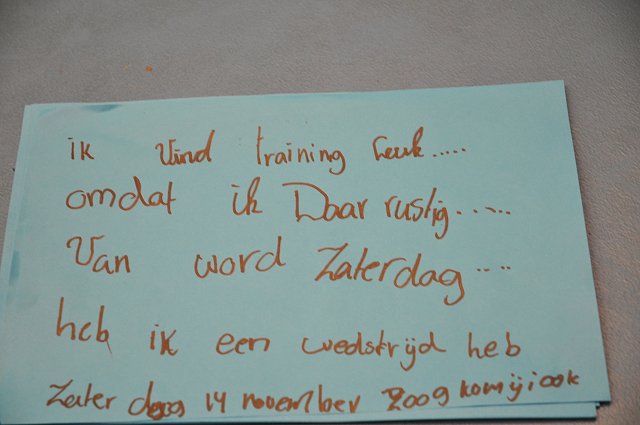 ik Vind training leuk.....
omdat ik Daar rustig.....
Van word Zaterdag....
heb ik een wedstrijd heb
Zaterdag 14 november 2009 kom jij ook